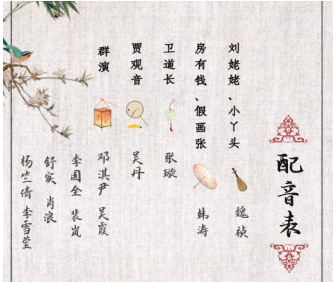 配音表
刘姥姥、小丫头
魏祯
房有钱、假画张
韩涛
卫道长
张璇
贾观音
吴丹
群演
邓淇尹 吴霞
李园全 裴岚
舒实 肖浪
杨竺倩 李雪莹